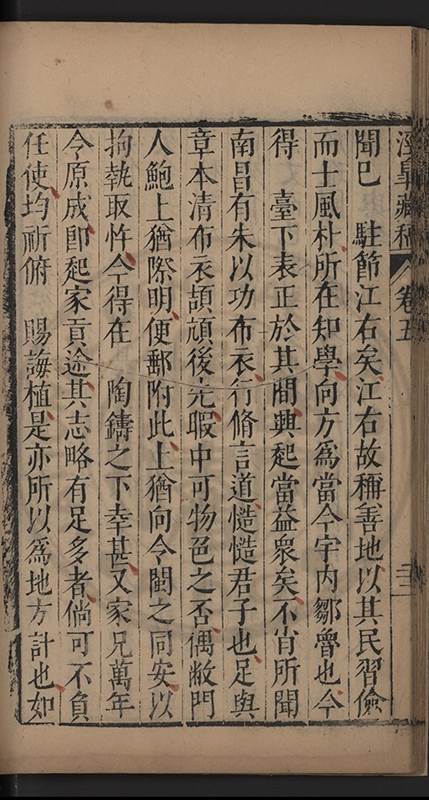 涇臯藏稿 卷五 三
聞巳 駐節江右矣江右故稱善地以其民習儉
而士風朴所在知學向方爲當今宇内鄒魯也今
得 臺下表正於其間興起當益衆矣不肖所聞
南昌有朱以功布衣行脩言道慥慥君子也足與
章本清布衣頡頏後先暇中可物色之否偶敝門
人鮑上猶際明便郵附此上猶向令閩之同安以
拘執取忤今得在 陶鑄之下幸甚又家兄萬年
令原成即起家貢途其志略有足多者倘可不負
任使均祈俯 賜誨植是亦所以爲地方計也如